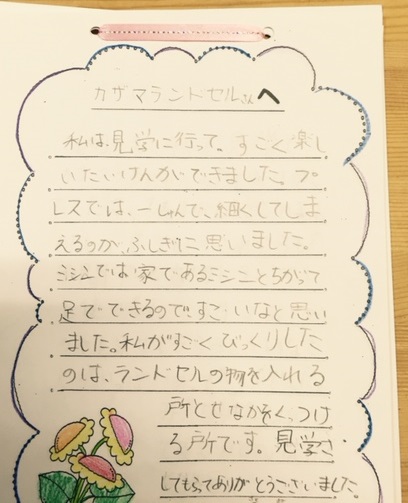 カザマランドセルさんへ
私は、見学に行って。すごく楽し
いたいけんができました。プ
レスでは、一しゅんで、細くしてしま
えるのが、ふしぎに思いました。
ミシンでは家であるミシンとちがって
足でできるのですごいなと思い
ました。私がすごくびっくりした
のは、ランドセルの物を入れる
所とせなかそく、つけ
る所です。見学さ
してもらってありがとうございました。